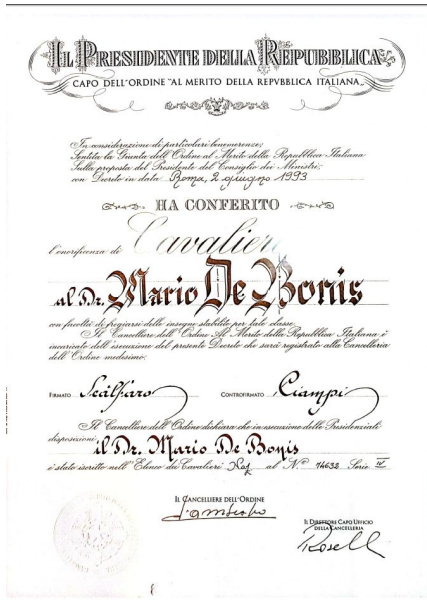 IL PRESIDENTE DELLA REPUBBLICA
CAPO DELL'ORDINE "AL MERITO DELLA REPVBBLICA ITALIANA"
In considerazione di particolari benemerenze;
Sentita la Giunta dell'Ordine al Merito della Repubblica Italiana
Sulla proposta del Presidente del Consiglio dei Ministri;
con Decreto in data Roma, 2 giugno 1993
HA CONFERITO
l'onorificenza di Cavaliere
al Dr. Mario De Bonis
con facoltà di fregiarsi delle insegne stabilite per tale classe.
Il Cancelliere dell'Ordine Al Merito della Repubblica Italiana è
incaricato dell'esecuzione del presente Decreto che sarà registrato alla Cancelleria
dell'Ordine medesimo.
FIRMATO Scalfaro CONTROFIRMATO Ciampi
Il Cancelliere dell'Ordine dichiara che in esecuzione delle Presidenziali
disposizioni il Dr. Mario De Bonis
è stato iscritto nell'Elenco dei Cavalieri Naz. al N° 14632 Serie IV
IL CANCELLIERE DELL'ORDINE
IL DIRETTORE CAPO UFFICIO
DELLA CANCELLERIA